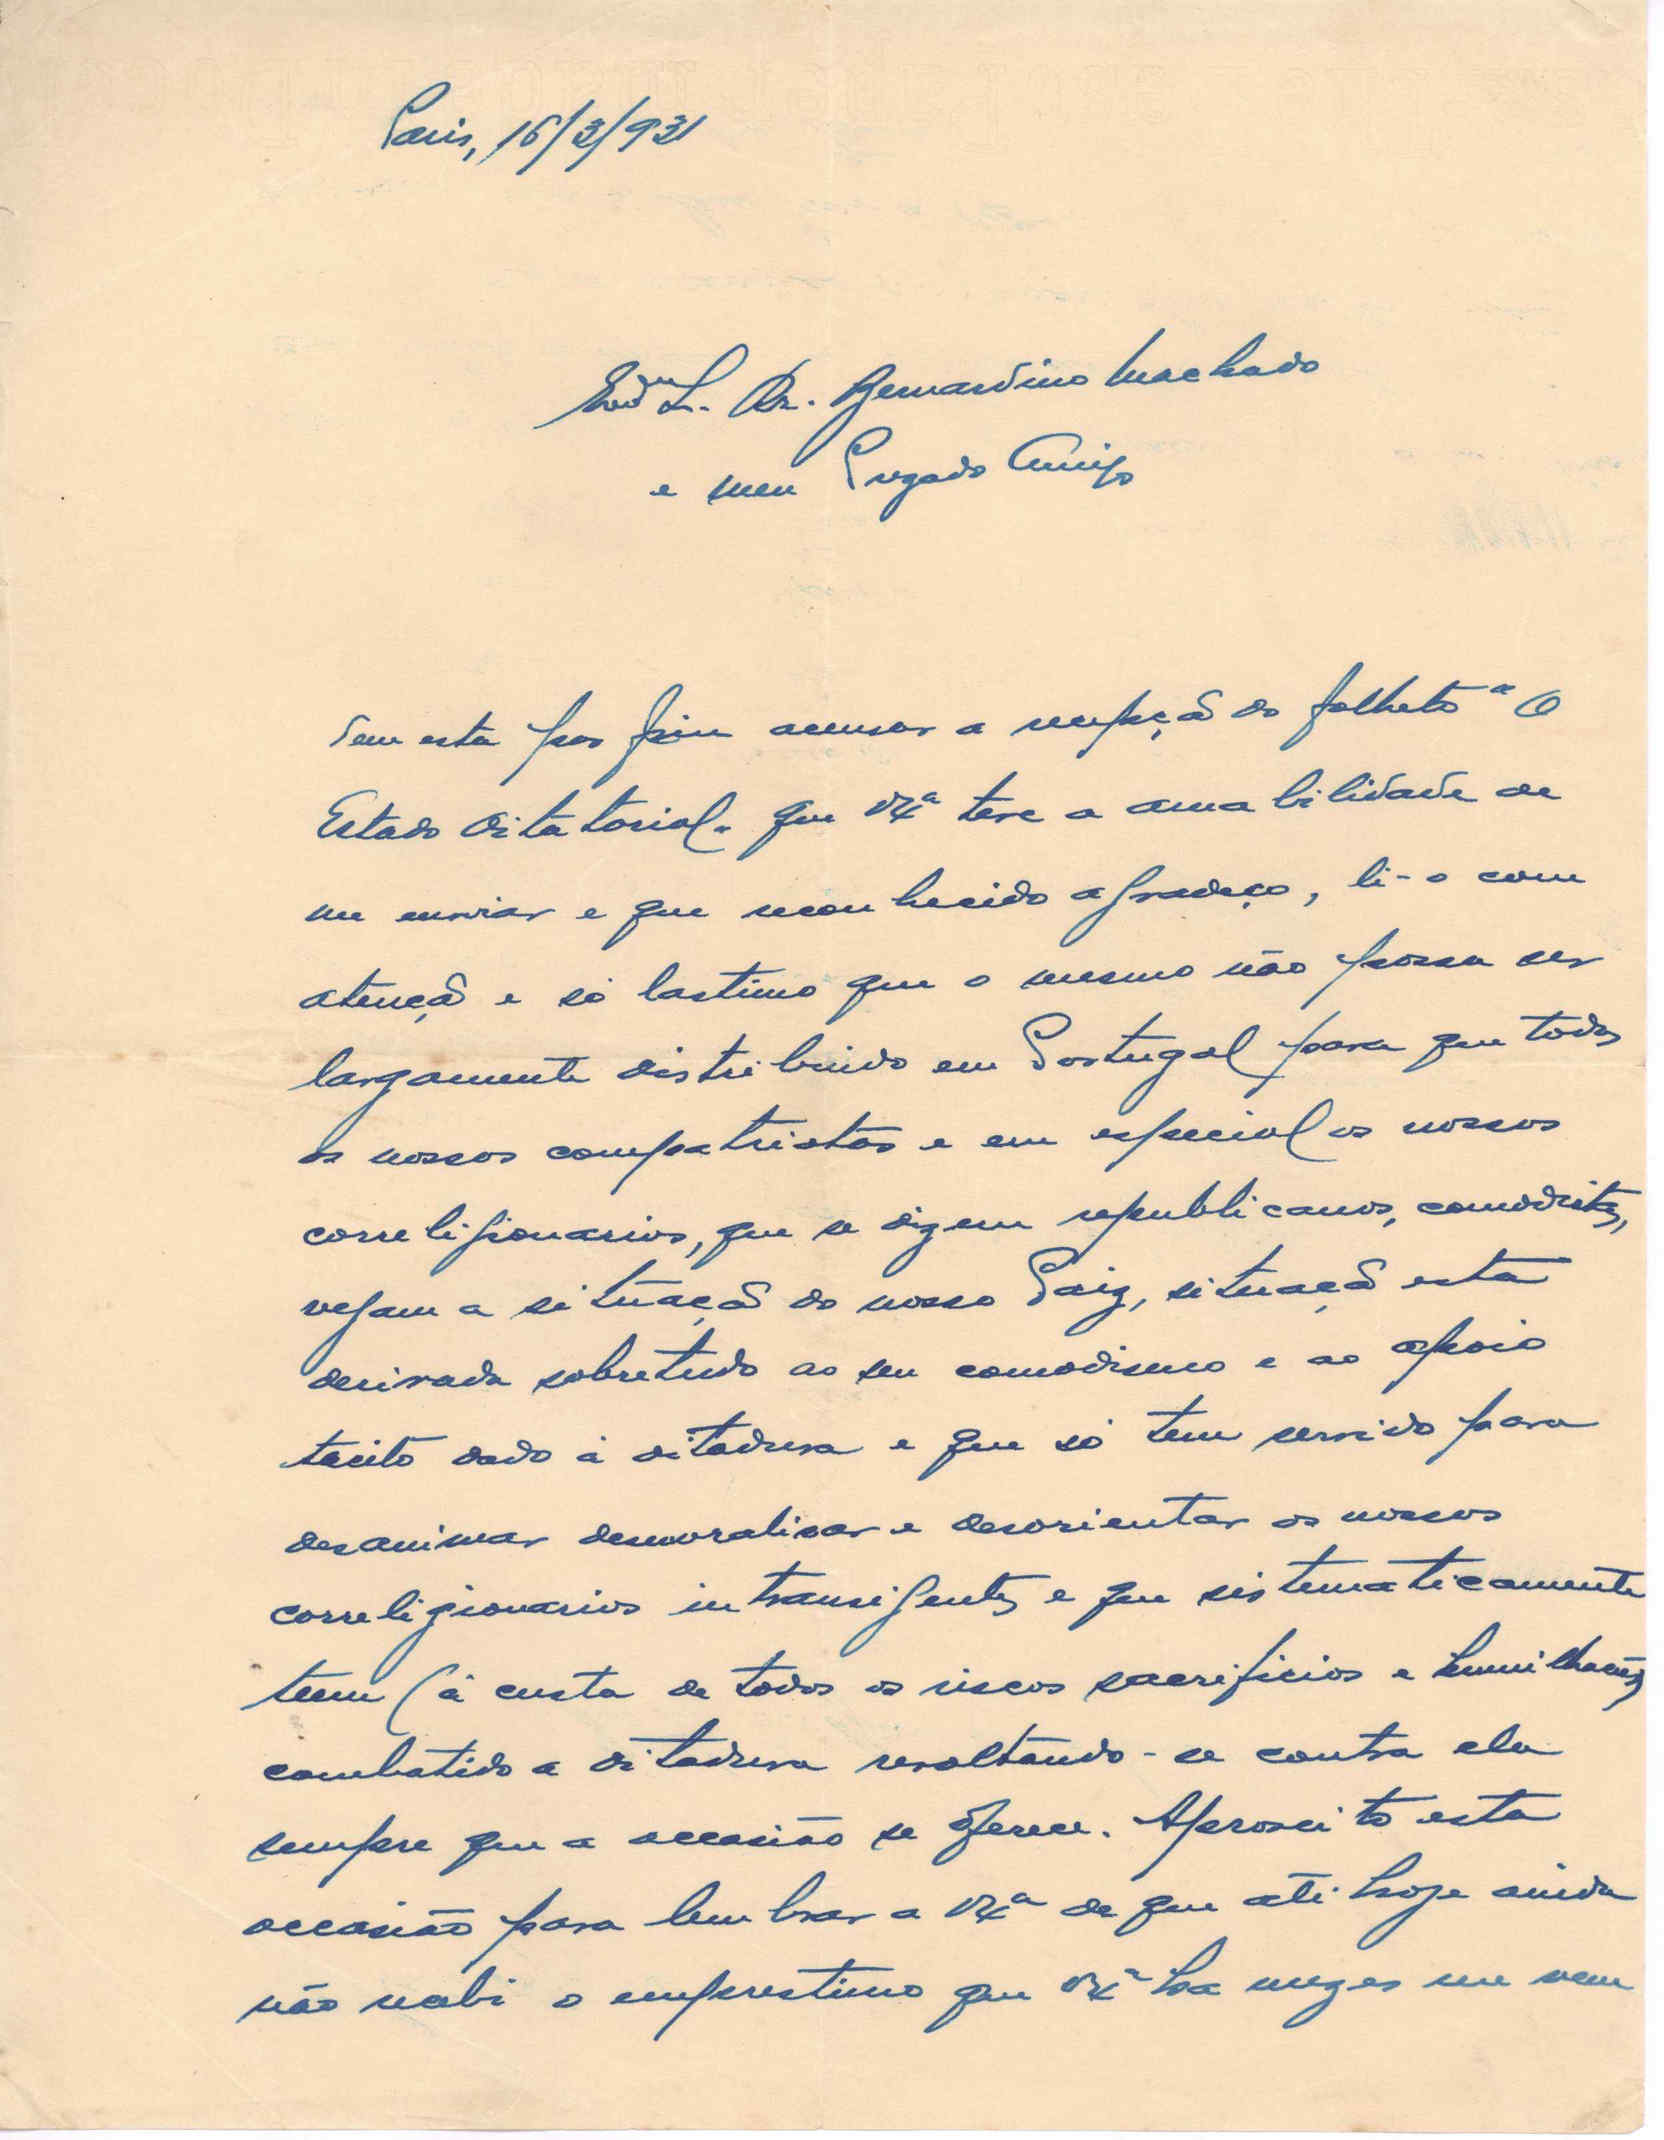 Paris, 16/3/931
Exmº Sr. Dr. Bernardino Machado
e meu Prezado Amigo
Tem esta por fim acusar a recepção do folheto "O
Estado Ditatorial" que V Exª teve a amabilidade de
me enviar e que reconhecido agradeço, li-o com
atenção e só lastimo que o mesmo não possa ser
largamente distribuido em Portugal para que todos
os nossos compatriotas e em especial os nossos
correligionarios, que se dizem republicanos, comodistas,
vejam a situação do nosso Paiz, situação esta
derivada sobretudo ao seu comodismo e ao apoio
tacito dado á ditadura e que só tem servido para
desanimar desmoralisar e desorientar os nossos
correligionarios intransigentes e que sistematicamente
teem (á custa de todos os riscos sacrificios e humilhações)
combatido a ditadura revoltando-se contra ela
sempre que a occasião se oferece. Aproveito esta
occasião para lembrar a V Exª de que até hoje ainda
não recebi o emprestimo que V Exª ha mezes me vem